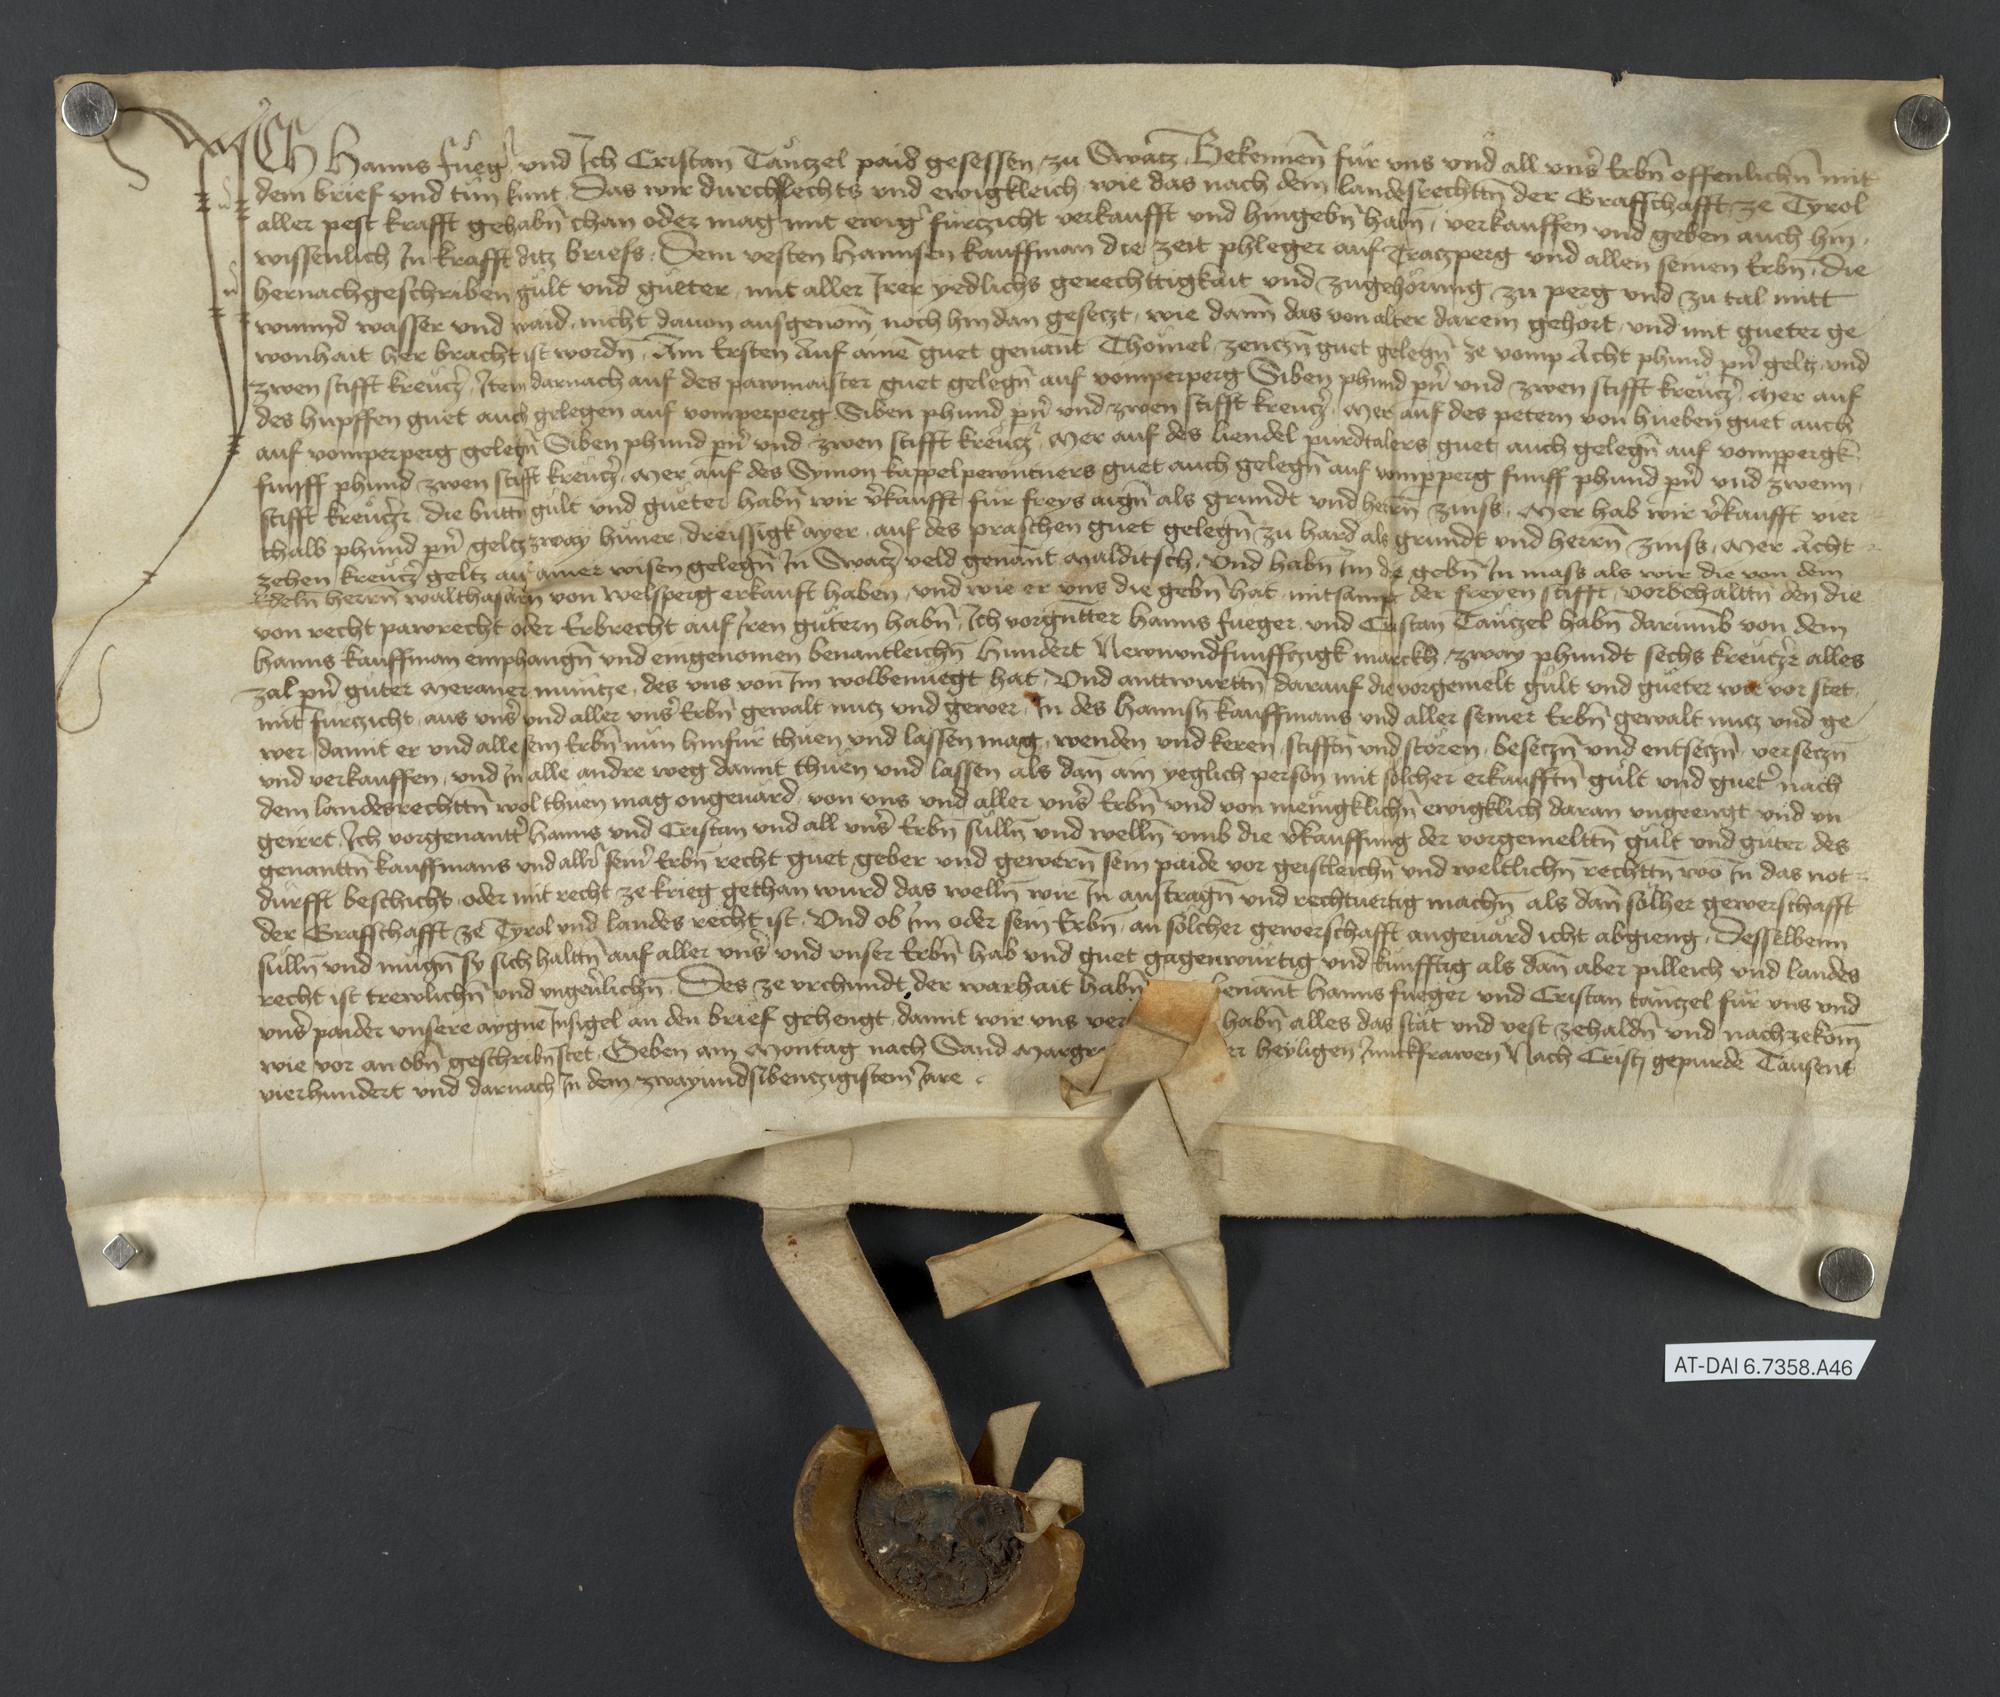 ICH Hanns fueg̃ und Ich Cristan Tanczel paid gesessen zu Swatz Bekennen̄ fur uns und all uns̃ Erbn̄ offenlichn̄ mit
dem brief und tun kunt Das wir durchslechts und ewigkleich wie das nach dem landesrechttn̄ der Graffschafft ze Tyrol
aller pest krafft gehabn̄ chan oder mag mit ewig̃ furczicht verkaufft und hingebn̄ habn̄ verkauffen und geben auch hin
wissenlich In krafft ditz briefs Dem vesten Hannsen kauffman die zeit phleger auf Traczperg und allen seinen Erbn̄ die
hernachgeschriben gult und gueter mit aller Irer yedlichs gerechttigkait und zugehorung zu perg und zu tal mitt
wunnd wasser und waid nicht davon ausgenom̄ noch hindan geseczt wie dann̄ das von alter darein gehort und mit gueter ge
wonhait her bracht ist wordn̄ Am Ersten Auf ainē guet genant Thomel zenczn̄ guet gelegn̄ ze vomp Acht phund pn̄ geltz und
zwen stifft kreuczs̃ Item darnach auf des pawmaister guet gelegn̄ auf vomperperg Siben phund pn̄ und zwen stifft kreucz̃ Mer auf
des hupffen guet auch gelegen auf vomperperg Siben phund pn̄ und zwen stifft kreucz̃ Mer auf des petern von hueben guet auch
auf vomperperg gelegn̄ Siben phund pn̄ und zwen stifft kreucz̃ Mer auf des liendel purdtalers guet auch gelegn̄ auf vomppergk
funff phund zwen stifft kreucz̃ Mer auf des Symon kappelpewntners guet auch gelegn̄ auf vompperg funff phund pn̄ und zwenn
stifft kreuczr̃ die güttn̄ gult und gueter habn̄ wir v̄kaufft fur freys aign̄ als grundt und herrn̄ zinss Mer hab wir v̄kaufft vier
thalb phund pn̄ geltz zway huner dreissigk ayer auf des praschen guet gelegn̄ zu hard als grundt und herrn̄ zinss Mer Acht
zehen kreucz̃ geltz auf ainer wisen gelegn̄ In Swatz̃ veld genant Malditsch Und habn̄ Im die gebn̄ In mass als wir die von dem
Edeln̄ herrn̄ walthasarn von welsperg erkauft haben und wie er uns die gebn̄ hat mitsampt der freyen stifft vorbehalttn̄ den die
von recht pawrecht oder Erbrecht auf Iren gutern habn̄ Ich vorgn̄tter Hanns fueger und Cristan Tanczel habn̄ darumb von dem
Hanns kauffman emphangn̄ und eingenomen benantleichn̄ Hundert Newnundfunffczigk marckh zway phundt sechs kreuczr̃ alles
zal pn̄ guter Meraner muntze des uns von Im wolbenuegt hat Und anttwurttn̄ darauf die vorgemelt gult und gueter wie vor stet
mit furczicht aus uns̃ und aller uns̃ Erbn̄ gewalt nucz und gewer In des Hannsn̄ kauffmans und aller seiner Erbn̄ gewalt nucz und ge
wer damit er und alle sein Erbn̄ nun hinfur thuen und lassen mag wenden und keren stifftn̄ und storen beseczn̄ und entseczn̄ verseczn̄
und verkauffen und In alle andre weg damit thuen und lassen als dan̄ ain yeglich person mit solcher erkaufftn̄ gult und guet̃ nach
dem landesrechttn̄ wol thuen mag ongevard von uns und aller uns̃ Erbn̄ und von menigklichn̄ ewigklich daran ungeengt und un
geirrt Ich vorgenantt̃ Hanns und Cristan und all uns̃ Erbn̄ sulln̄ und welln̄ umb die v̄kauffung der vorgemelttn̄ gult und guter des
genanttn̄ kauffmans und all̃ sein̄ Erbn̄ recht guet geber und gewern̄ sein paide vor geistleichn̄ und weltlichn̄ rechttn̄ wo In das not
durfft beschicht oder mit recht ze krieg gethan wurd das welln̄ wir In austragn̄ und rechtuertig machn̄ als dan̄ solher gewerschafft
der Graffschafft ze Tyrol und landes recht ist Und ob Im oder sein Erbn̄ an solcher gewerschafft angevard icht abgieng Desselbenn
sulln̄ und mugn̄ sy sich halttn̄ auf aller uns̃ und unser Erbn̄ hab und guet gagenwurtig und kunfftig als dan̄ aber pilleich und landes
recht ist trewlichn̄ und ungev̄lichn̄ Des ze urchundt der warhait habn̄ benant Hanns fueger und Cristan tanczel fur uns und
uns̃ paider unsere aygne Insigel an den brief gehengt damit wir uns ver habn̄ alles das stat und vest zehaldn̄ und nachzekom̄
wie vor an obn̄ geschribn̄ stet Geben am Montag nach Sand Margre er heyligen Junckfrawen Nach Cristj gepurde Tausent
vierhundert und darnach In dem zwayundsibenczigistem̄ Jare
AT-DAI 6.7358.A46